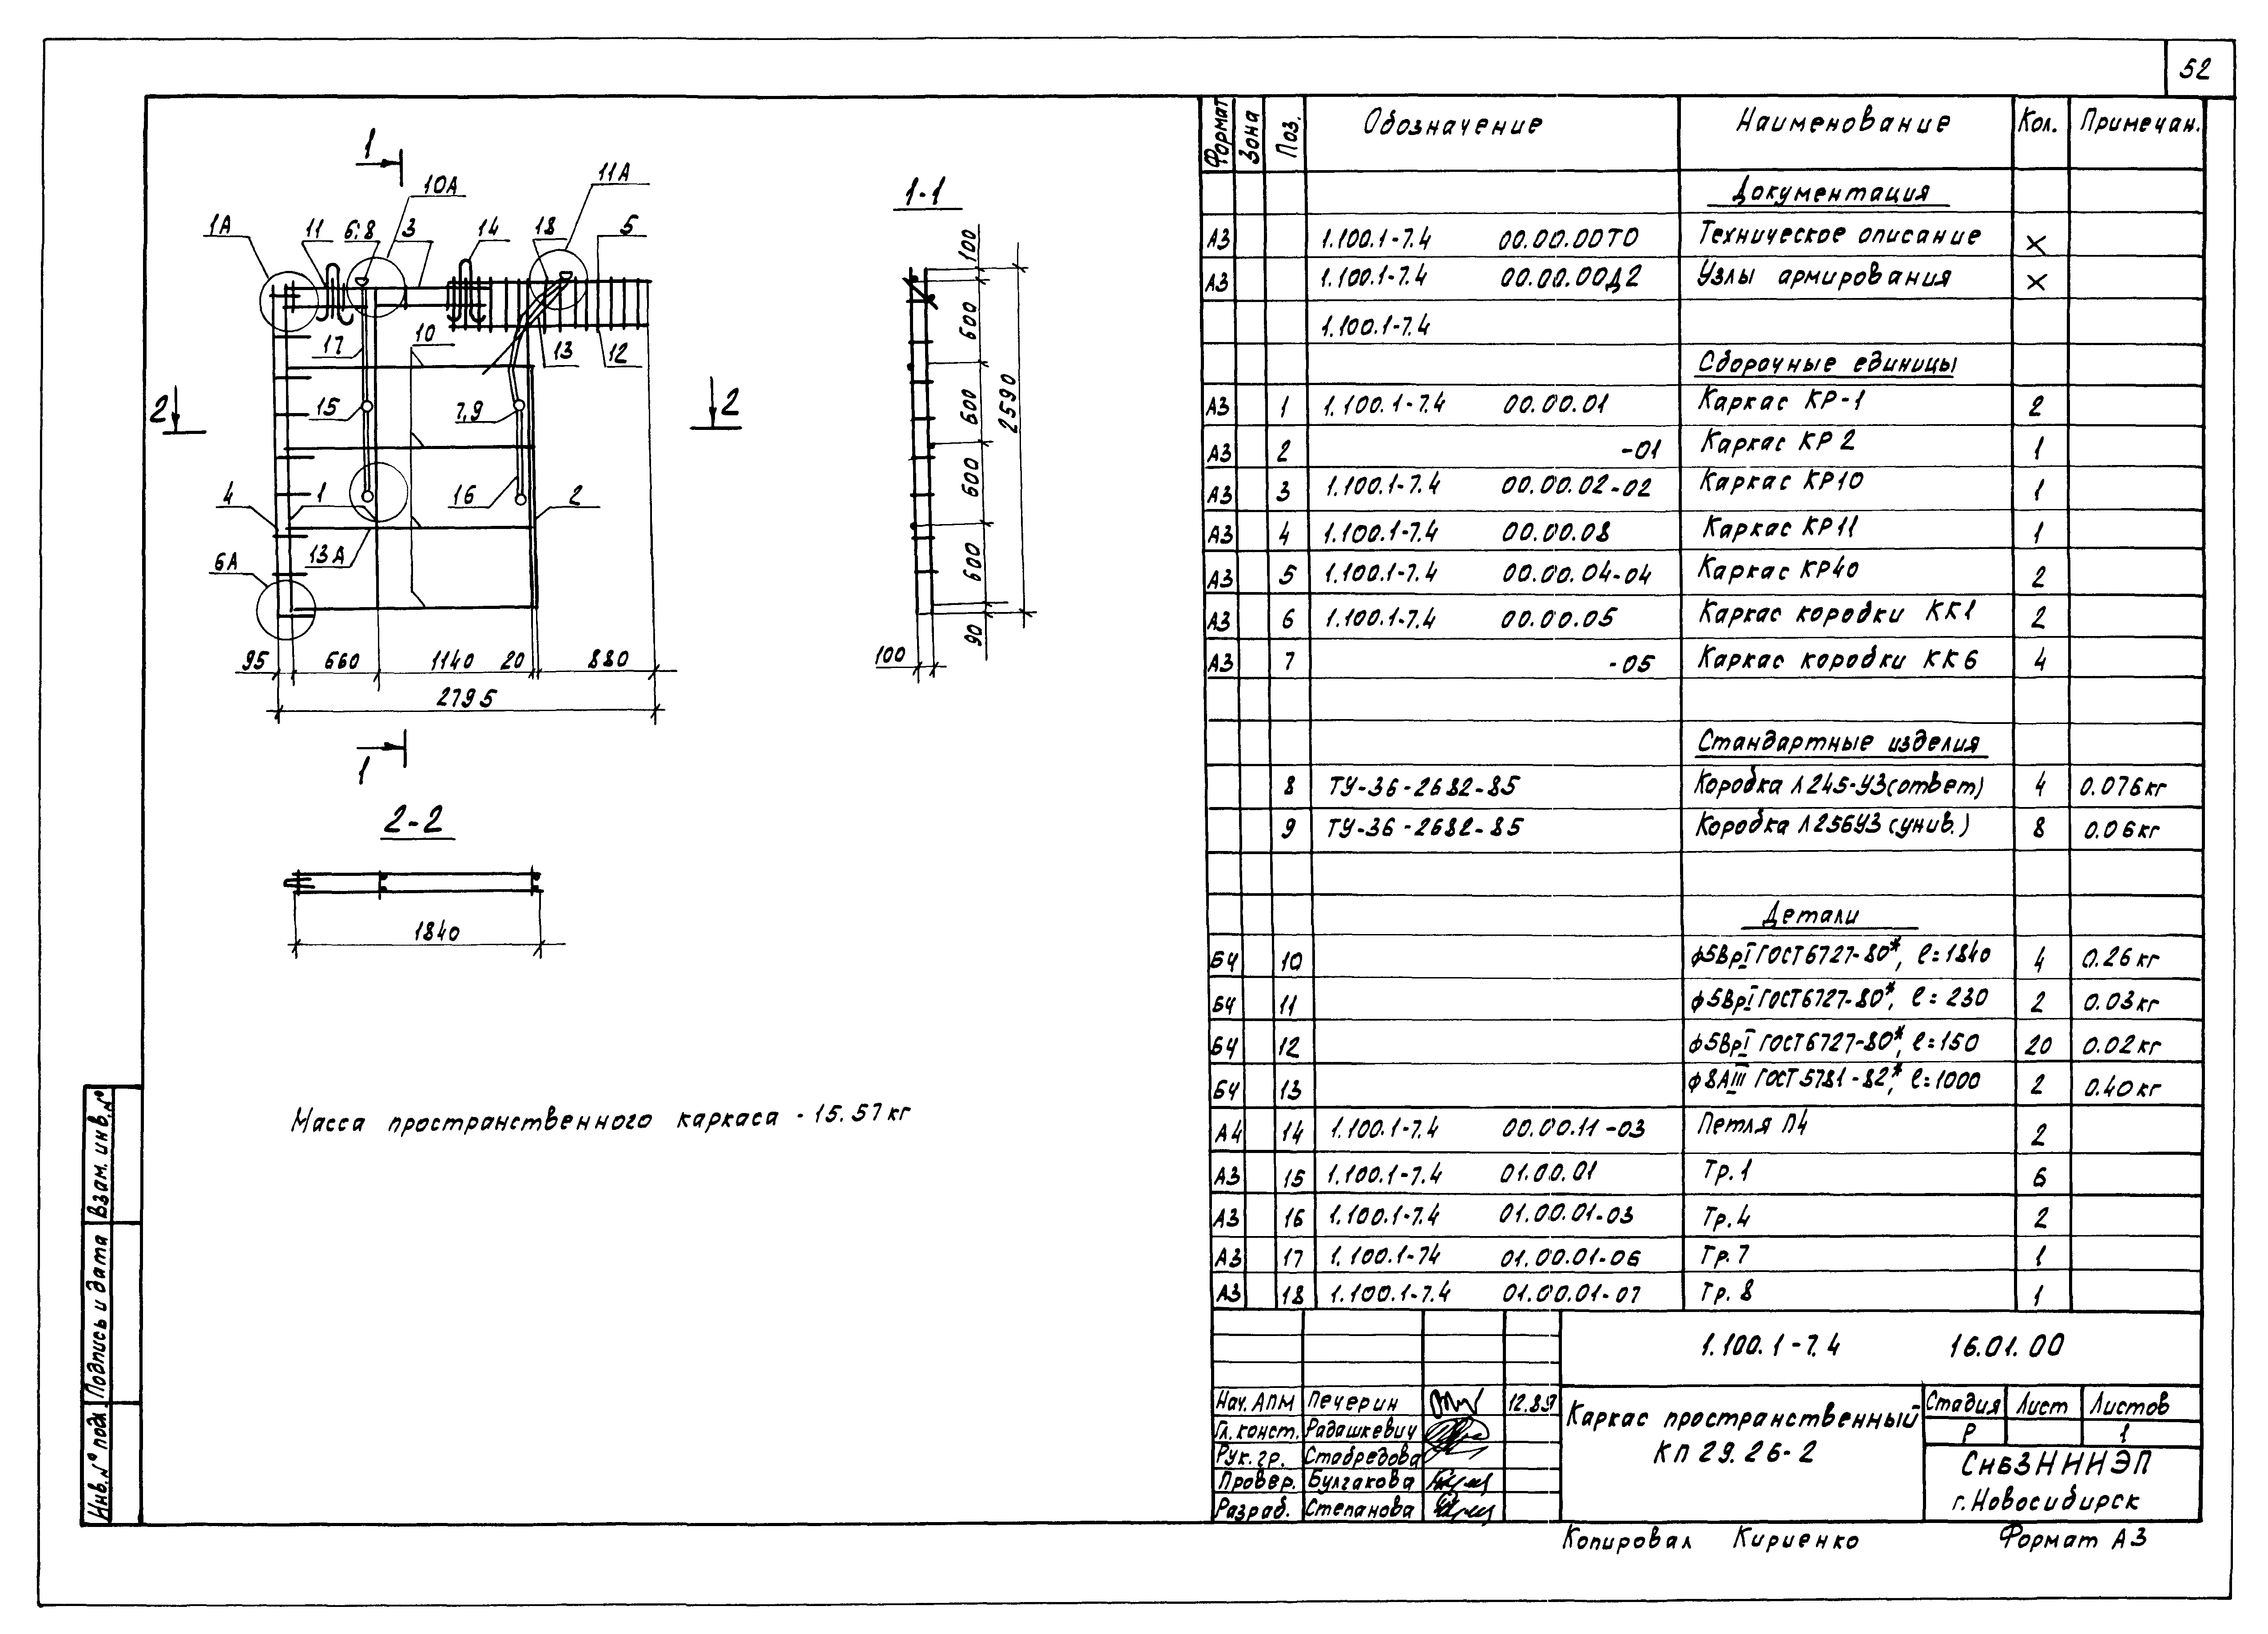 52
1
10А
11А
1А
11
6;8
3
14
18
5
17
10
13
12
2
2
15
7,9
4
1
16
2
13А
6А
95
660
1140
20
880
2795
1
1-1
100
600
600
600
600
90
2590
100
2-2
1840
Масса пространственного каркаса - 15.57кг
Формат Зона Поз. Обозначение Наименование Кол. Примечан.
Документация
А3 1.100.1-7.4 00.00.00ТО Техническое описание х
А3 1.100.1-7.4 00.00.00Д2 Узлы армирования х
1.100.1-7.4
Сборочные единицы
А3 1 1.100.1-7.4 00.00.01 Каркас КР-1 2
А3 2 -01 Каркас КР 2 1
А3 3 1.100.1-7.4 00.00.02-02 Каркас КР10 1
А3 4 1.100.1-7.4 00.00.08 Каркас КР11 1
А3 5 1.100.1-7.4 00.00.04-04 Каркас КР40 2
А3 6 1.100.1-7.4 00.00.05 Каркас коробки КК1 2
А3 7 -05 Каркас коробки КК6 4
Стандартные изделия
8 ТУ-36-2682-85 Коробка Л245-У3(ответ) 4 0.076кг
9 ТУ-36-2682-85 Коробка Л256У3 (унив.) 8 0.06кг
Детали
БЧ 10 ф5ВрI ГОСТ6727-80*, ℓ=1840 4 0.26кг
БЧ 11 ф5ВрI ГОСТ6727-80*, ℓ= 230 2 0.03кг
БЧ 12 ф5ВрI ГОСТ6727-80*, ℓ=150 20 0.02кг
БЧ 13 ф8АIII ГОСТ5781-82*, ℓ=1000 2 0.40кг
А4 14 1.100.1-7.4 00.00.11-03 Петля П4 2
А3 15 1.100.1-7.4 01.00.01 Тр.1 6
А3 16 1.100.1-7.4 01.00.01-03 Тр.4 2
А3 17 1.100.1-74 01.00.01-06 Тр.7 1
А3 18 1.100.1-7.4 01.00.01-07 Тр.8 1
1.100.1-7.4 16.01.00
Нач.АПМ Печерин 12.89
Гл.конст. Радашкевич
Рук.гр. Стабредова
Провер. Булгакова
Разраб. Степанова
Каркас пространственный
КП 29.26-2
Стадия Лист Листов
Р 1
СибЗНИИЭП
г.Новосибирск
Копировал Кириенко Формат А3
Взам. инв.№
Подпись и дата
Инв.№ подл.